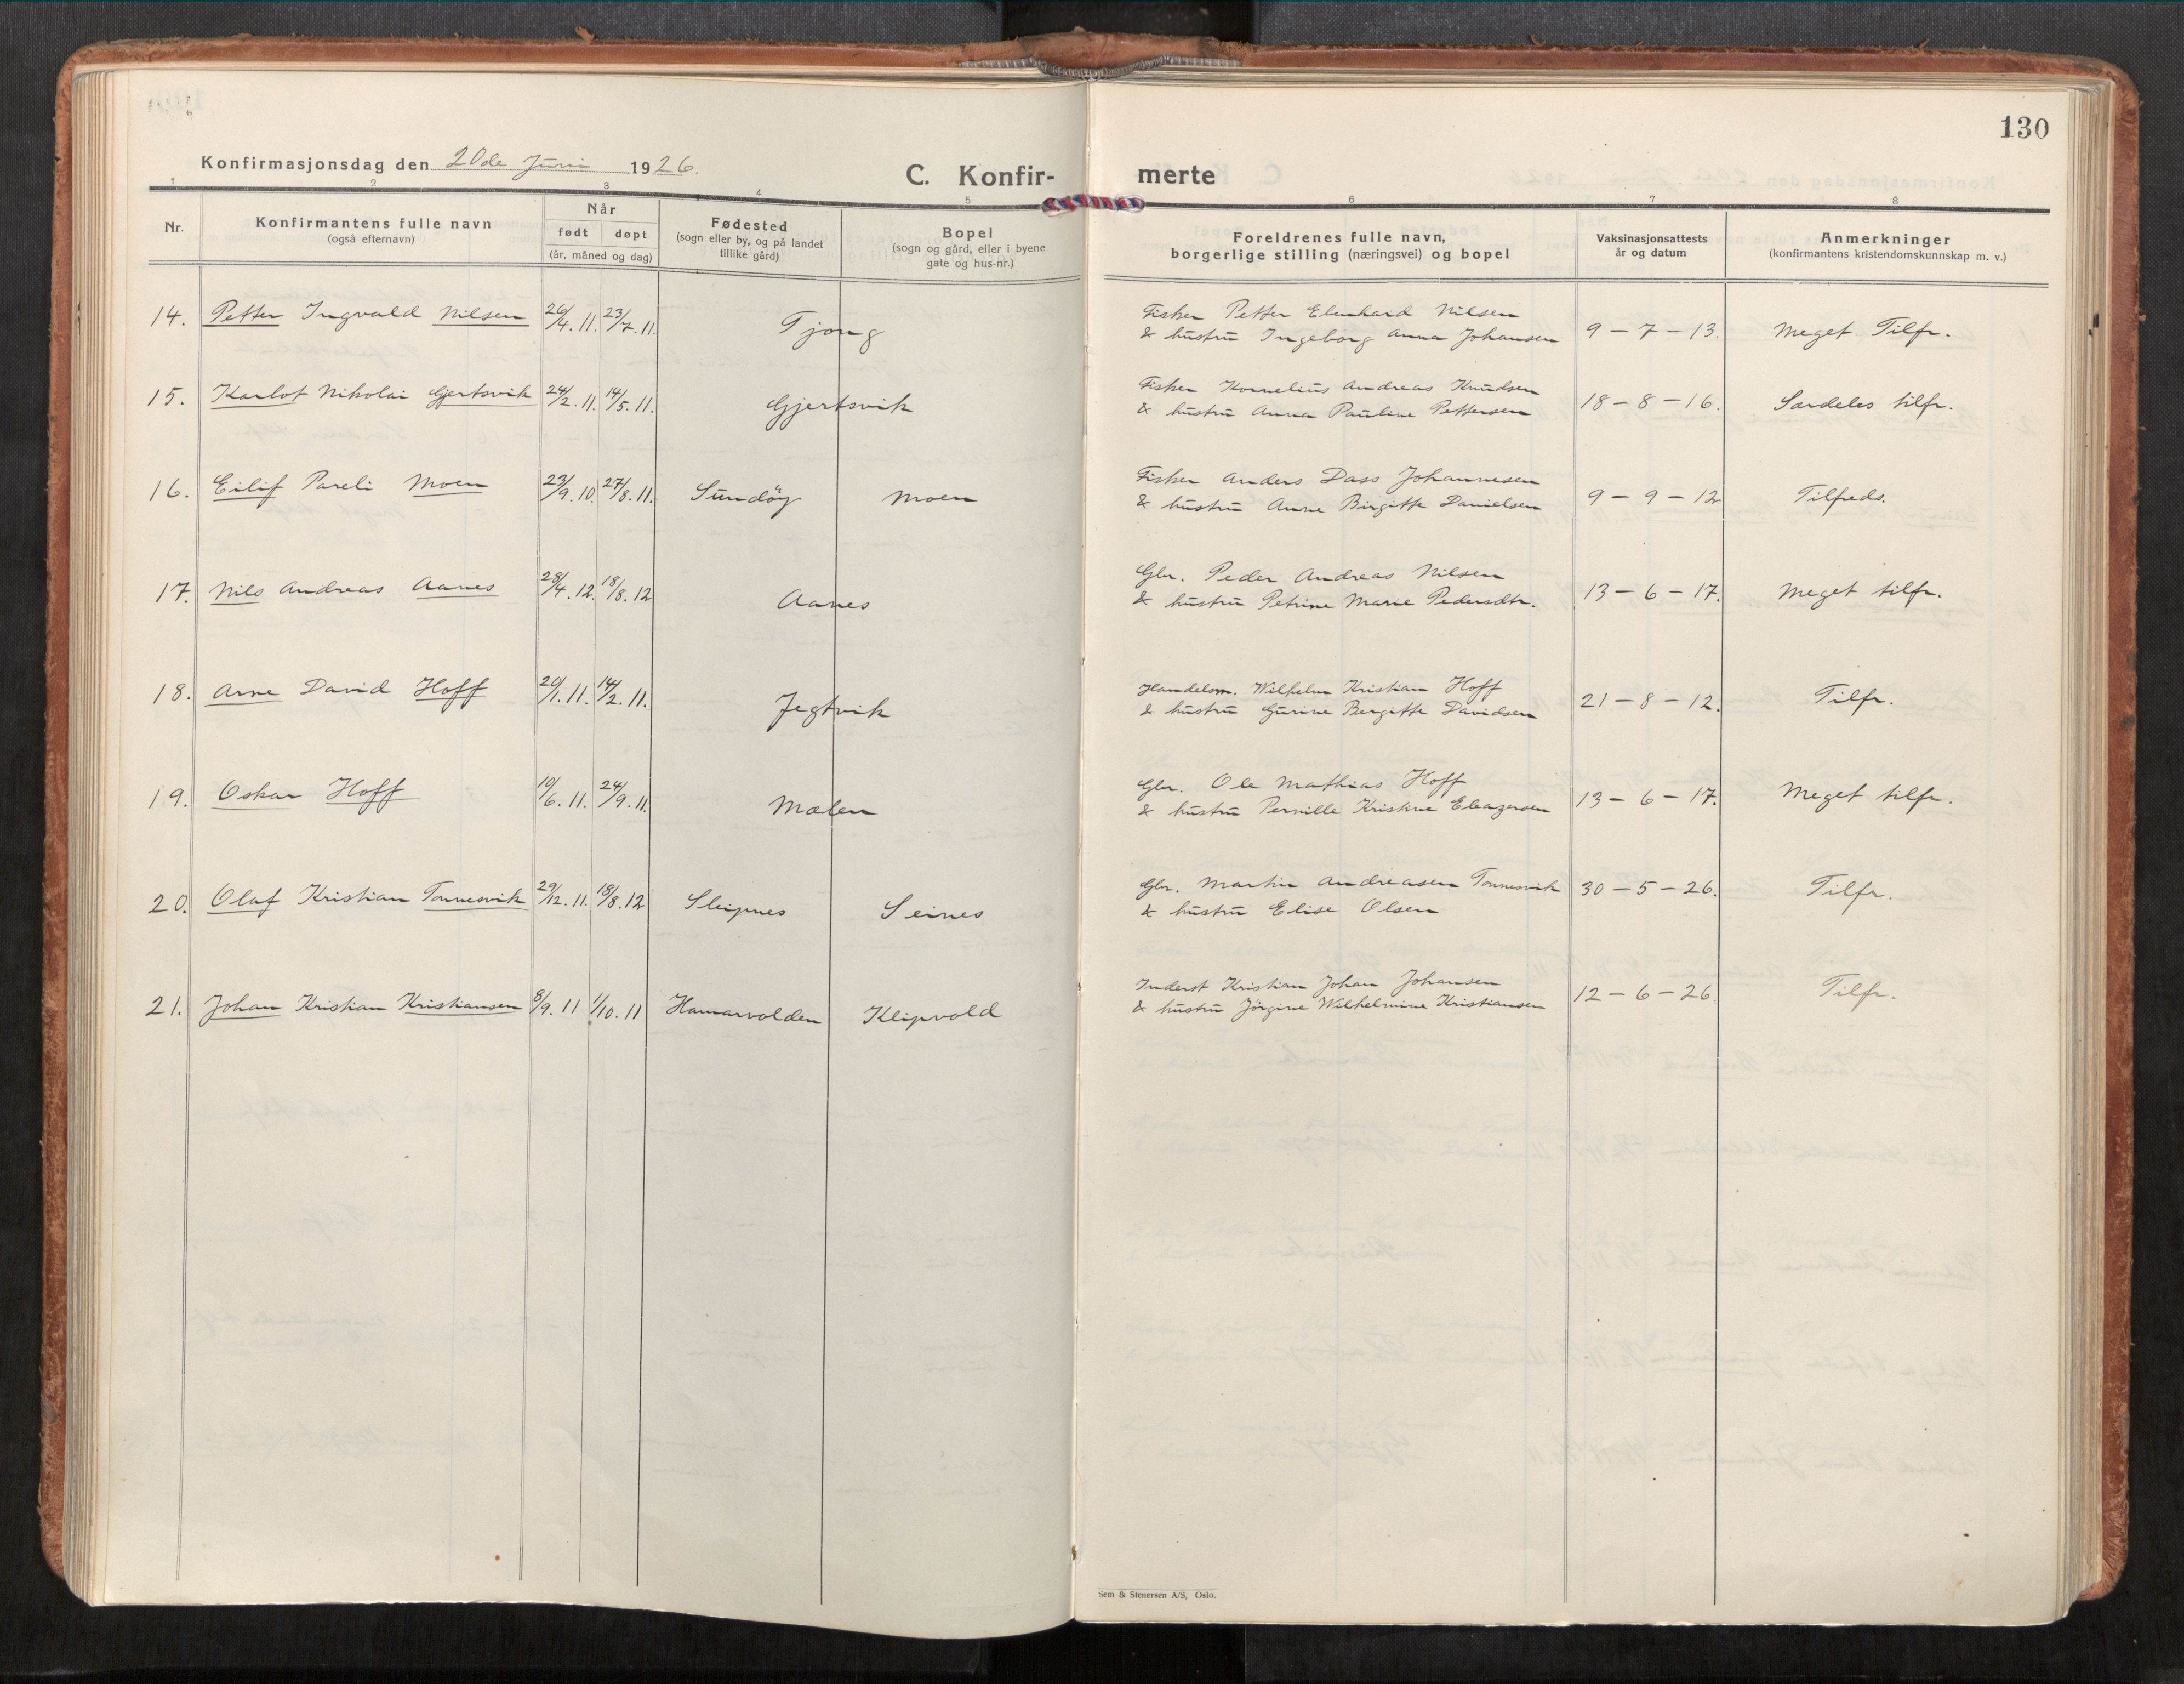 130
Konfirmasjonsdag den 20de Juni 1926.
C. Konfir-
merte
1 2 3 4 5 6 7 8
Nr.
Konfirmantens fulle navn
(også efternavn)
Når
født døpt
(år, måned og dag)
Fødested
(sogn eller by, og på landet
tillike gård)
Bopel
(sogn og gård, eller i byene
gate og hus-nr.)
Foreldrenes fulle navn,
borgerlige stilling (næringsvei) og bopel
Vaksinasjonsattests
år og datum
Anmerkninger
(konfirmantens kristendomskunnskap m. v.)
14. Petter Ingvald Nilsen 26/4. 11. 23/7. 11. Tjong
Fisker Petter Elenhard Nilsen
& hustru Ingeborg Anna Johansen 9 – 7 – 13. Meget Tilfr.
15. Karlot Nikolai Gjertsvik 24/2. 11. 14/5. 11. Gjertsvik
Fisker Kornelius Andreas Knudsen
& hustru Anna Pauline Pettersen 18 – 8 – 16. Særdeles tilfr.
16. Eilif Pareli Moen 23/9. 10. 27/8. 11. Sundöy Moen
Fisker Anders Dass Johannesen
& hustru Anne Birgitte Danielsen 9 – 9 – 12 Tilfreds.
17. Nils Andreas Aanes 28/4. 12. 18/8. 12 Aanes
Gbr. Peder Andreas Nilsen
& hustru Petrine Marie Pedersdtr. 13 – 6 – 17. Meget tilfr.
18. Arne David Hoff 20/1. 11. 14/2. 11. Jegtvik
Handelsm. Wilhelm Kristian Hoff
& hustru Gurine Bergitte Davidsen 21 – 8 – 12. Tilfr.
19. Oskar Hoff 10/6. 11. 24/9. 11. Mælen
Gbr. Ole Mathias Hoff
& hustru Pernille Kristine Eleazersen 13 – 6 – 17. Meget tilfr.
20. Olaf Kristian Tonnesvik 29/12. 11. 18/8. 12 Sleipnes Seines
Gbr. Martin Andreasen Tonnesvik 30 – 5 – 26. Tilfr.
& hustru Elise Olsen
21. Johan Kristian Kristiansen 8/9. 11 1/10. 11 Hamarvolden Klipvold
Inderst Kristian Johan Johansen
& hustru Jörgine Wilhelmine Kristiansen 12 – 6 – 26. Tilfr.
Sem & Stenersen A/S, Oslo.